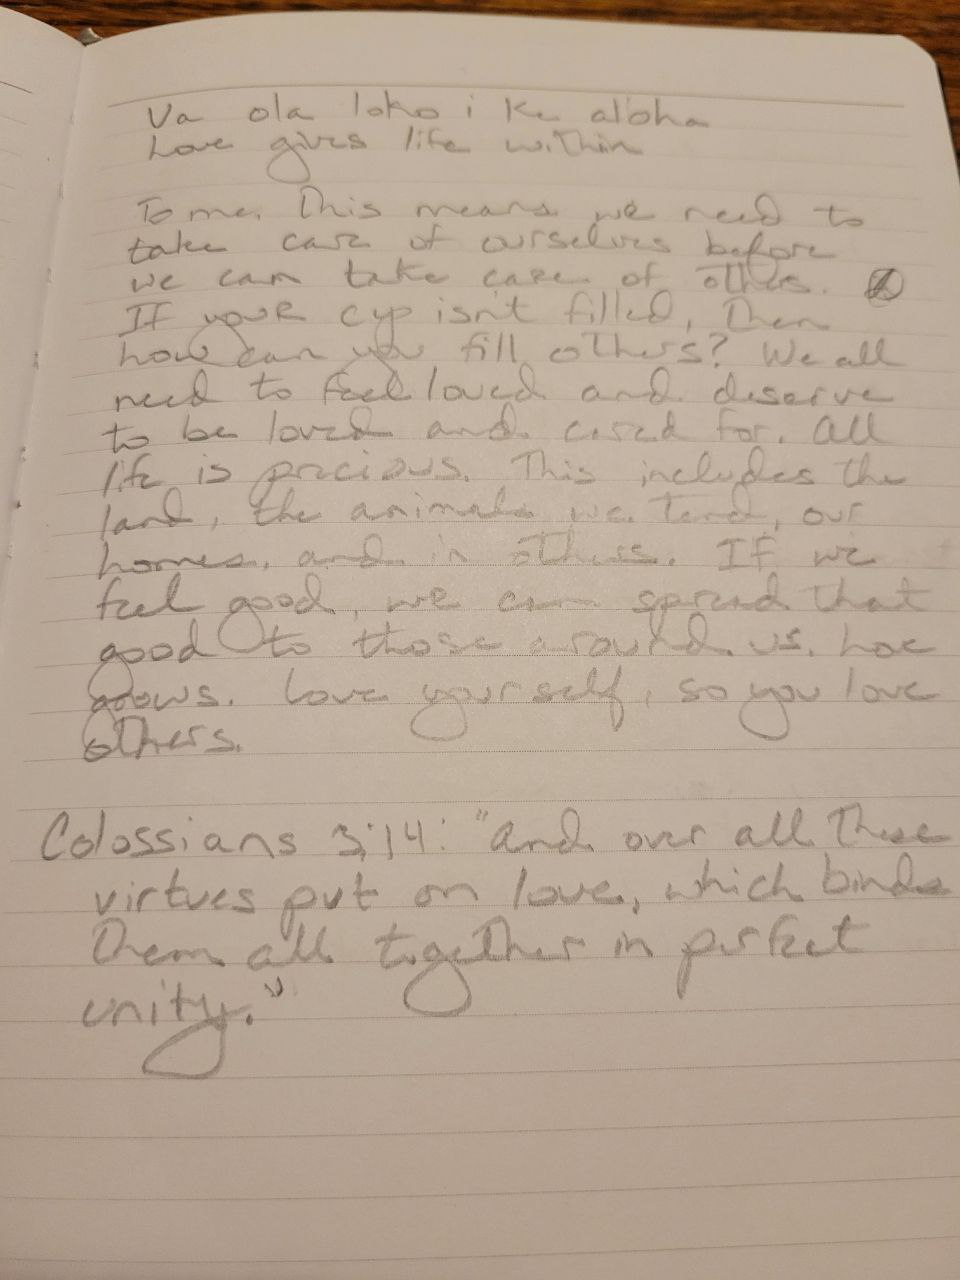 Ua ola loko i ke aloha
Love gives life within
To me. This means we need to
take care of ourselves before
we can take care of others.
If your cup isn't filled, then
how can you fill others? We all
need to feel loved and deserve
to be loved and cared for. All
life is precious. This includes the
land, the animals we tend, our
homes, and in others. If we
feel good, we can spread that
good to those around us.
grows. Love yourself, so you love
others.
Colossians 3:14: "And over all these
virtues put on love, which binds
them all together in perfect
unity."